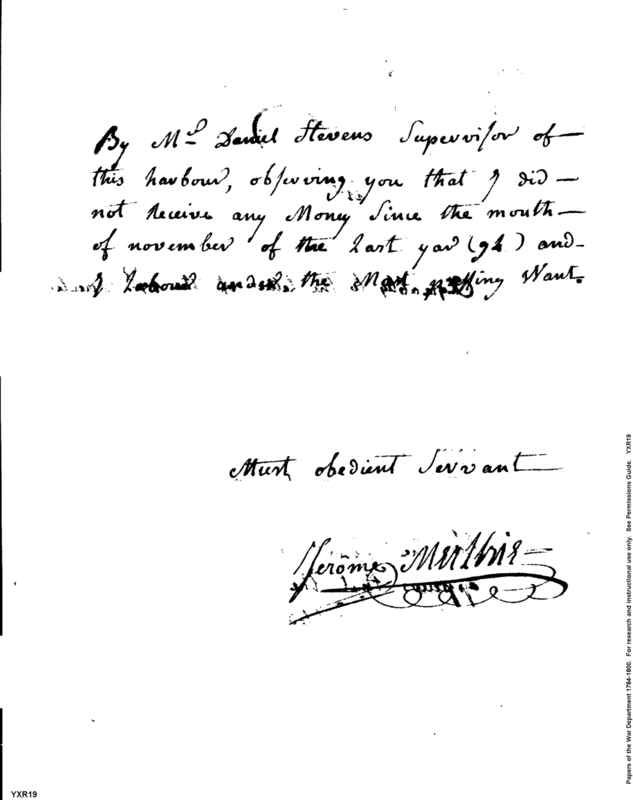 By Mr Daniel Stevens Supervisor of
this harbour, observing you that I did
not Receive any Money Since the month
of november of the Last year (94) and
I Labour under the Most pressing Want.
Must obedient Servant
Jerôme
Papers of the War Department 1784-1800. For research and instructional use only. See Permissions Guide. YXR19
YXR19